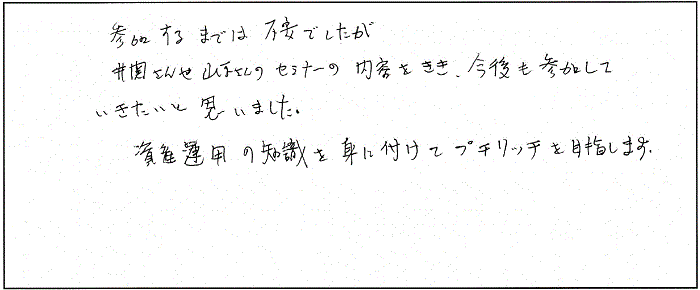 参加するまでは不安でしたが
井関さんや山下さんのセミナーの内容をきき、今後も参加して
いきたいと思いました。
資産運用の知識を身に付けてプチリッチを目指します。